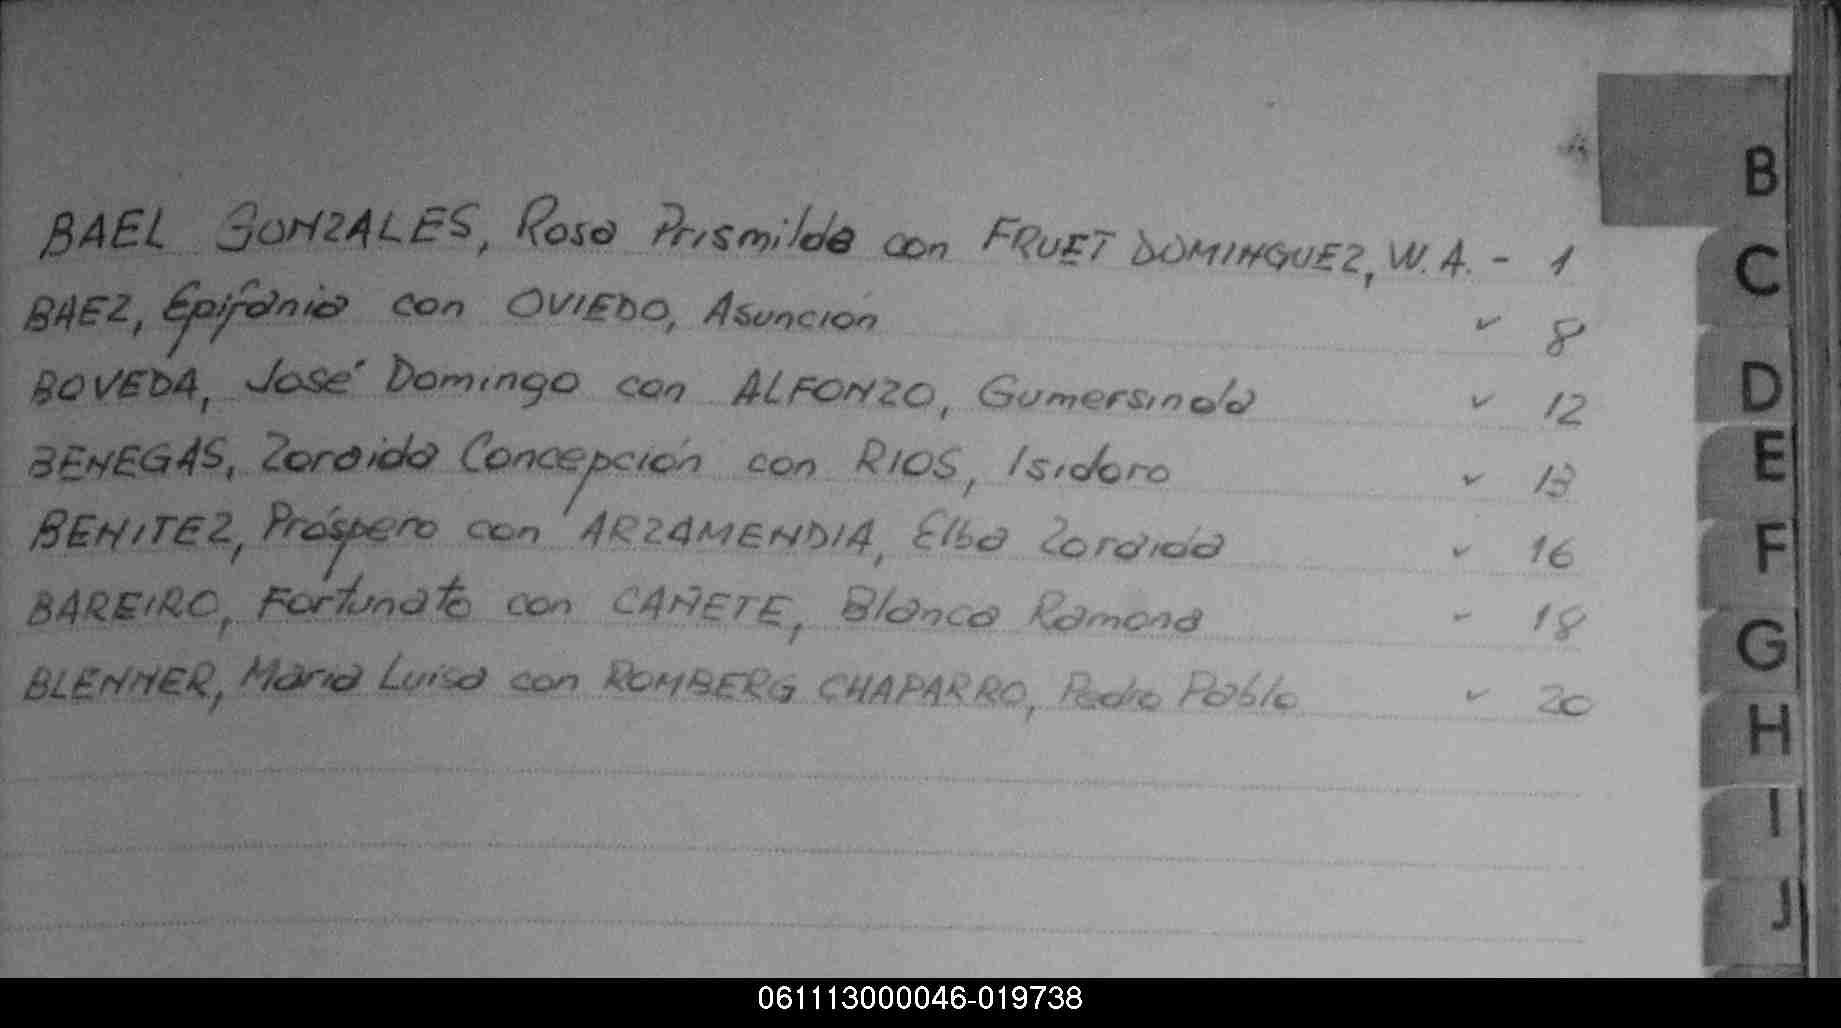 BAEL GONZALES, Rosa Prismilda con FRUET DOMINGUEZ, W.A. - 1
BAEZ, Epifanio con OVIEDO, Asunción ✓ 8
BOVEDA, José Domingo con ALFONZO, Gumersinda ✓ 12
BENEGAS, Zoraida Concepción con RIOS, Isidoro ✓ 13
BENITEZ, Próspero con ARZAMENDIA, Elba Zoraida ✓ 16
BAREIRO, Fortunato con CAÑETE, Blanca Ramona - 18
BLENNER, Maria Luisa con ROMBERG CHAPARRO, Pedro Pablo ✓ 20
B
C
D
E
F
G
H
I
J
061113000046-019738